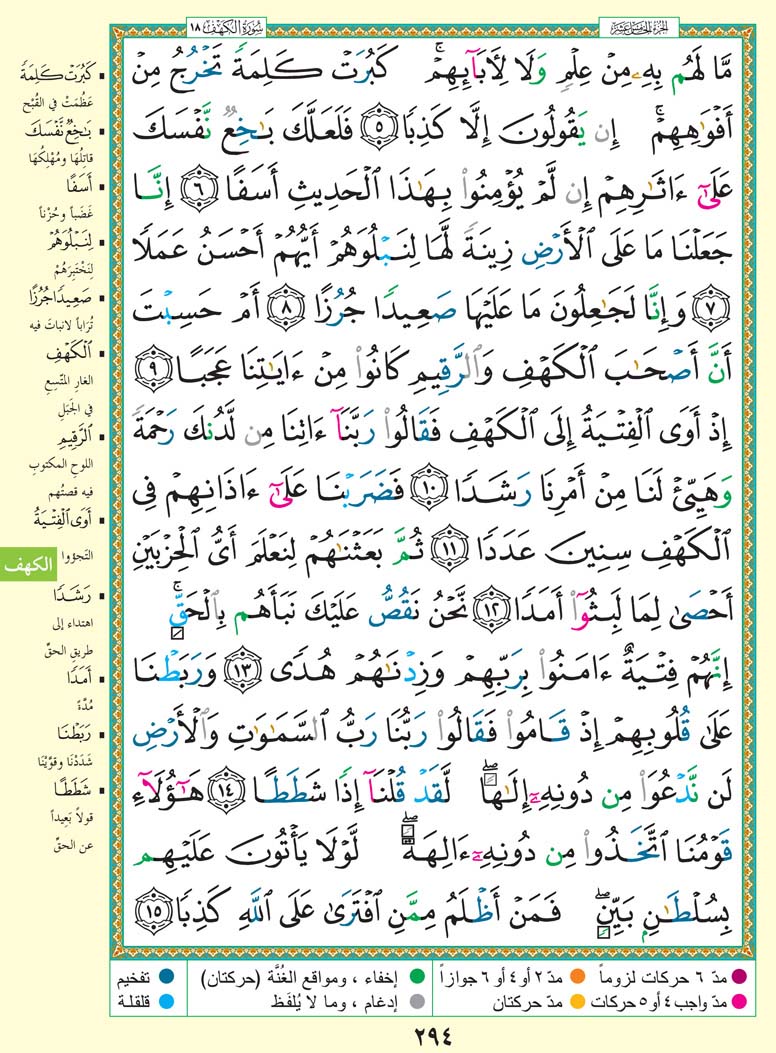 سُورَةُ الكَهْفِ ١٨
الجُزءُ الخَامِسَ عَشَرَ
مَّا لَهُم بِهِۦ مِنْ عِلْمٍ وَلَا لِأٓبَآئِهِمْۚ كَبُرَتْ كَلِمَةً تَخْرُجُ مِنْ
أَفْوَٰهِهِمْۚ إِن يَقُولُونَ إِلَّا كَذِبًا ٥ فَلَعَلَّكَ بَٰخِعٌ نَّفْسَكَ
عَلَىٰٓ ءَاثَٰرِهِمْ إِن لَّمْ يُؤْمِنُوا۟ بِهَٰذَا ٱلْحَدِيثِ أَسَفًا ٦ إِنَّا
جَعَلْنَا مَا عَلَى ٱلْأَرْضِ زِينَةً لَّهَا لِنَبْلُوَهُمْ أَيُّهُمْ أَحْسَنُ عَمَلًا
٧ وَإِنَّا لَجَٰعِلُونَ مَا عَلَيْهَا صَعِيدًا جُرُزًا ٨ أَمْ حَسِبْتَ
أَنَّ أَصْحَٰبَ ٱلْكَهْفِ وَٱلرَّقِيمِ كَانُوا۟ مِنْ ءَايَٰتِنَا عَجَبًا ٩
إِذْ أَوَى ٱلْفِتْيَةُ إِلَى ٱلْكَهْفِ فَقَالُوا۟ رَبَّنَآ ءَاتِنَا مِن لَّدُنكَ رَحْمَةً
وَهَيِّئْ لَنَا مِنْ أَمْرِنَا رَشَدًا ١٠ فَضَرَبْنَا عَلَىٰٓ ءَاذَانِهِمْ فِى
ٱلْكَهْفِ سِنِينَ عَدَدًا ١١ ثُمَّ بَعَثْنَٰهُمْ لِنَعْلَمَ أَىُّ ٱلْحِزْبَيْنِ
أَحْصَىٰ لِمَا لَبِثُوٓا۟ أَمَدًا ١٢ نَّحْنُ نَقُصُّ عَلَيْكَ نَبَأَهُم بِٱلْحَقِّۚ
إِنَّهُمْ فِتْيَةٌ ءَامَنُوا۟ بِرَبِّهِمْ وَزِدْنَٰهُمْ هُدًى ١٣ وَرَبَطْنَا
عَلَىٰ قُلُوبِهِمْ إِذْ قَامُوا۟ فَقَالُوا۟ رَبُّنَا رَبُّ ٱلسَّمَٰوَٰتِ وَٱلْأَرْضِ
لَن نَّدْعُوَا۟ مِن دُونِهِۦٓ إِلَٰهًاۖ لَّقَدْ قُلْنَآ إِذًا شَطَطًا ١٤ هَٰٓؤُلَآءِ
قَوْمُنَا ٱتَّخَذُوا۟ مِن دُونِهِۦٓ ءَالِهَةًۖ لَّوْلَا يَأْتُونَ عَلَيْهِم
بِسُلْطَٰنٍۭ بَيِّنٍۖ فَمَنْ أَظْلَمُ مِمَّنِ ٱفْتَرَىٰ عَلَى ٱللَّهِ كَذِبًا ١٥
▪ كَبُرَتْ كَلِمَةً
عَظُمَتْ في القُبْحِ
▪ بَٰخِعٌ نَّفْسَكَ
قاتِلُهَا ومُهْلِكُهَا
▪ أَسَفًا
غَضَباً وحُزْناً
▪ لِنَبْلُوَهُمْ
لِنَخْتَبِرَهُمْ
▪ صَعِيدًا جُرُزًا
تُرَاباً لا نباتَ فيه
▪ ٱلْكَهْفِ
الغارِ المتّسِعِ
في الجَبَلِ
▪ ٱلرَّقِيمِ
اللوحِ المكتوبِ
فيه قصتُهم
▪ أَوَى ٱلْفِتْيَةُ
التَجؤوا
▪ رَشَدًا
اهتداء إلى
طريقِ الحقِّ
▪ أَمَدًا
مُدّةً
▪ رَبَطْنَا
شَدَدْنَا وقوّيْنَا
▪ شَطَطًا
قولاً بَعِيداً
عن الحقِّ
الكهف
● مدّ ٦ حركات لزوماً ● مدّ ٢ أو ٤ أو ٦ جوازاً ● إخفاء ، ومواقع الغُنَّة (حركتان) ● تفخيم
● مدّ واجب ٤ أو ٥ حركات ● مدّ حركتان ● إدغام ، وما لا يُلفَظ ● قلقلة
٢٩٤